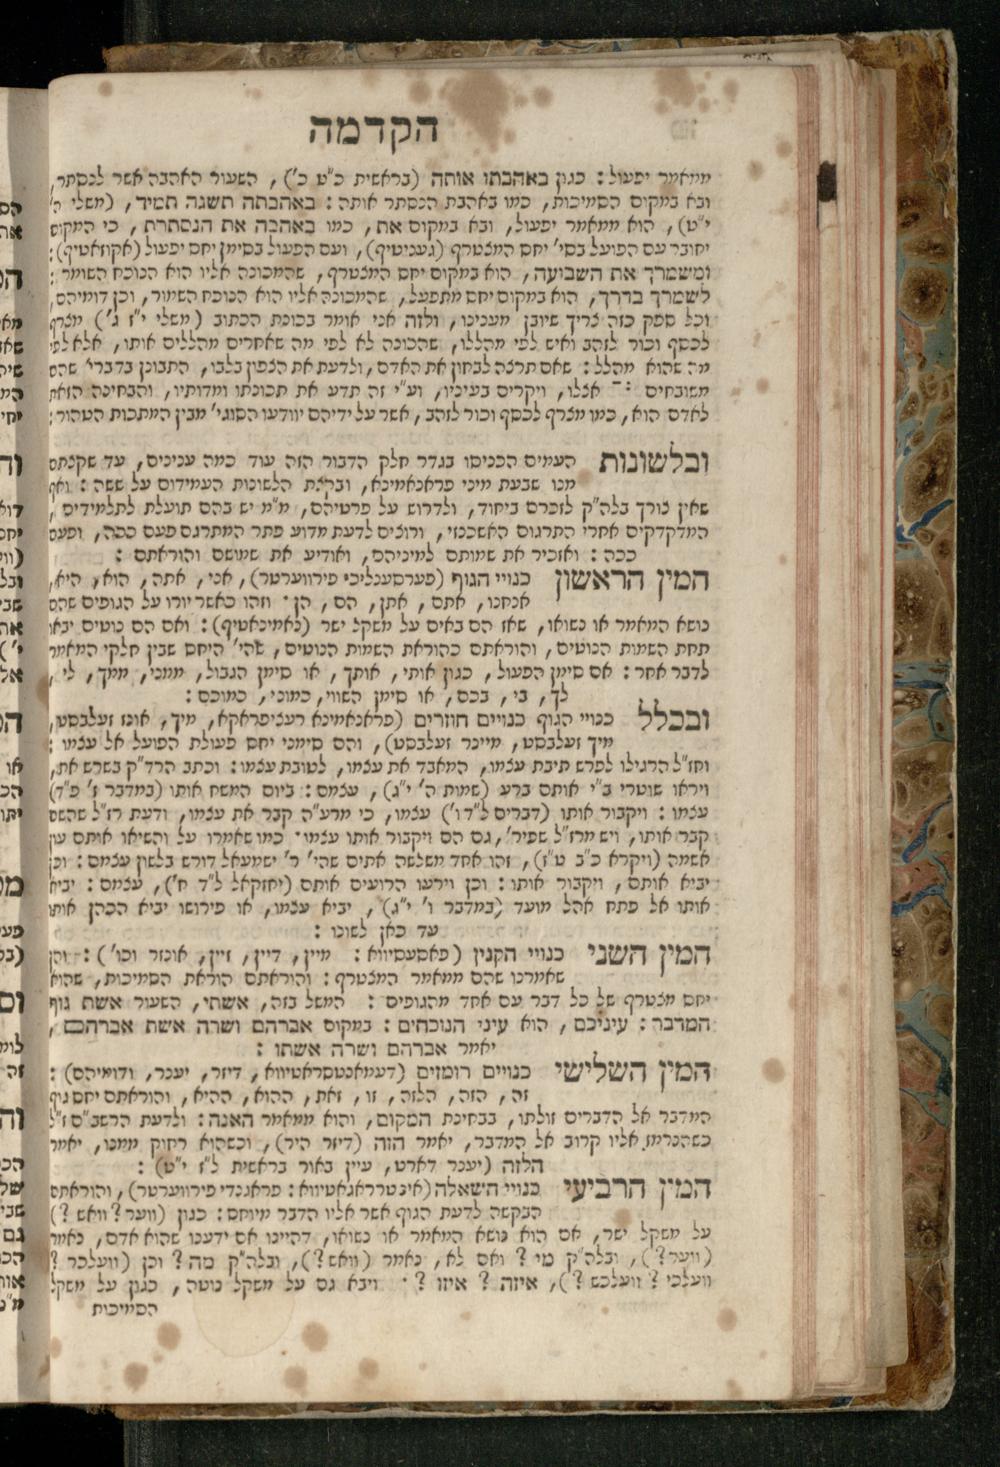 הקדמה
ממאמר יפעול: כגון באהבתו אותה (בראשית כ"ט כ'), השעור האהבה אשר לנסתר,
ובא במקום הסמיכות, כמו באהבת הנסתר אותה: באהבתה תשגה תמיד, (משלי ה'
י"ט), הוא ממאמר יפעול, ובא במקום את, כמו באהבה את הנסתרת, כי המקום
יחובר עם הפועל בסי' יחס המצטרף (געניטיף), ועם הפעול בסימן יחס יפעול (אקוזאטיף):
ומשמרך את השביעה, הוא במקום יחס המצטרף, שהמכונה אליו הוא הנוכח השומר:
לשמרך בדרך, הוא במקום יחס מתפעל, שהמכונה אליו הוא הנוכח השמור, וכן דומיהם,
וכל ספק כזה צריך שיובן מענינו, ולזה אני אומר בכונת הכתוב (משלי י"ז ג') מצרף
לכסף וכור לזהב ואיש לפי מהללו, שהכונה לא לפי מה שאחרים מהללים אותו, אלא לפי
מה שהוא מהלל: שאם תרצה לבחון את האדם, ולדעת את הצפון בלבו, התבונן בדברי' שהם
משובחים אצלו, ויקרים בעיניו, וע"י זה תדע את תכונתו ומדותיו, והבחינה הזאת
לאדם הוא, כמו מצרף לכסף וכור לזהב, אשר על ידיהם יוודעו הסוגי' מבין המתכות הטהור:
ובלשונות העמים הכניסו בגדר חלק הדבור הזה עוד כמה ענינים, עד שקצתם
מנו שבעת מיני פראנאמינא, ובקצת הלשונות העמידום על ששה: ואף
שאין צורך בלה"ק לזכרם ביחוד, ולדרוש על פרטיהם, מ"מ יש בהם תועלת לתלמידים,
המדקדקים אחרי התרגום האשכנזי, ורוצים לדעת מדוע פתר המתרגם פעם ככה, ופעם
ככה: ואזכיר את שמותם למיניהם, ואודיע את שמושם והוראתם:
המין הראשון כנויי הגוף (פערסענליכי פירווערטר), אני, אתה, הוא, היא,
אנחנו, אתם, אתן, הם, הן· וזהו כאשר יורו על הגופים שהם
נושא המאמר או נשואו, שאז הם באים על משקל ישר (נאמינאטיף): ואם הם נוטים יבאו
תחת השמות הנוטים, והוראתם כהוראת השמות הנוטים, שהי' היחס שבין חלקי המאמר
לדבר אחר: אם סימן הפעול, כגון אותי, אותך, או סימן הגבול, ממני, ממך, לי,
לך, בי, בכם, או סימן השווי, כמוני, כמוכם:
ובכלל כנויי הגוף כנויים חוזרים (פראנאמינא רעציפראקא, מיך, אונז זעלבסט,
מיך זעלבסט, מיינר זעלבסט), והם סימני יחס פעולת הפועל אל עצמו:
וחז"ל הרגילו לפרש תיבת עצמו, המאבד את עצמו, לטובת עצמו: וכתב הרד"ק בשרש את,
ויראו שוטרי ב"י אותם ברע (שמות ה' י"ג), עצמם: ביום המשח אותו (במדבר ז' פ"ד)
עצמו: ויקבור אותו (דברים ל"ד ו') עצמו, כי מרע"ה קבר את עצמו, ודעת רז"ל שהשם
קבר אותו, ויש מרז"ל שפיר', גם הם ויקבור אותו עצמו· כמו שאמרו על והשיאו אותם עון
אשמה (ויקרא כ"ב ט"ז), זהו אחד משלשה אתים שהי' ר' ישמעאל דורש בלשון עצמם: וכן
יביא אותם, ויקבור אותו: וכן וירעו הרועים אותם (יחזקאל ל"ד ח'), עצמם: יביא
אותו אל פתח אהל מועד (במדבר ו' י"ג), יביא עצמו, או פירושו יביא הכהן אותו
עד כאן לשונו:
המין השני כנויי הקנין (פאסעסיווא: מיין, דיין, זיין, אונזר וכו'): והן
שאמרנו שהם ממאמר המצטרף: והוראתם הוראת הסמיכות, שהוא
יחס מצטרף של כל דבר עם אחד מהגופים: המשל בזה, אשתי, השעור אשת גוף
המדבר: עיניכם, הוא עיני הנוכחים: במקום אברהם ושרה אשת אברהם,
יאמר אברהם ושרה אשתו:
המין השלישי כנויים רומזים (דעמאנסטראטיווא, דיזר, יענר, ודומיהם):
זה, הזה, הלזה, זו, זאת, ההוא, ההיא, והוראתם יחס גוף
המדבר אל הדברים זולתו, בבחינת המקום, והוא ממאמר האנה: ולדעת הרשב"ם ז"ל
כשהנרמז אליו קרוב אל המדבר, יאמר הזה (דיזר היר), וכשהוא רחוק ממנו, יאמר
הלזה (יענר דארט, עיין באור בראשית ל"ז י"ט):
המין הרביעי כנויי השאלה (אינטרראגאטיווא: פראגנדי פירווערטר), והוראתם
הבקשה לדעת הגוף אשר אליו הדבר מיוחס: כגון (ווער? וואש?)
על משקל ישר, אם הוא נושא המאמר או נשואו, דהיינו אם ידענו שהוא אדם, נאמר
(ווער?), ובלה"ק מי? ואם לא, נאמר (וואש?), ובלה"ק מה? וכן (וועלכר?
וועלכי? וועלכש?), איזה? איזו?· ויבא גם על משקל נוטה, כגון על משקל
הסמיכות